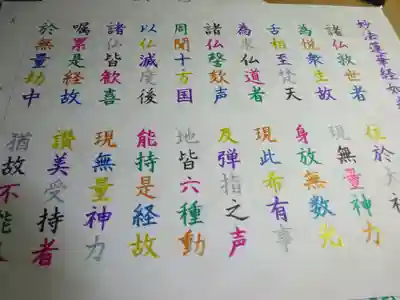 妙法蓮華経如
諸仏救世者　住於大神
為悦衆生故　現無量神力
舌相至梵天　身放無数光
為求仏道者　現此希有事
諸仏謦欬声　及弾指之声
周聞十方国　地皆六種動
以仏滅度後　能持是経故
諸仏皆歓喜　現無量神力
嘱累是経故　讃美受持者
於無量劫中　猶故不能